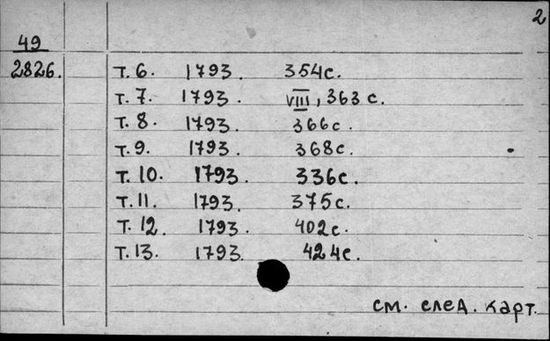 2
49
2826. т. 6. 1793. 354с.
т. 7. 1793. VIII, 363 с.
т. 8. 1793. 366с.
т. 9. 1793. 368с.
т. 10. 1793. 336с.
т. 11. 1793. 375с.
т. 12. 1793. 402с.
т. 13. 1793. 424с.
см. след. карт.